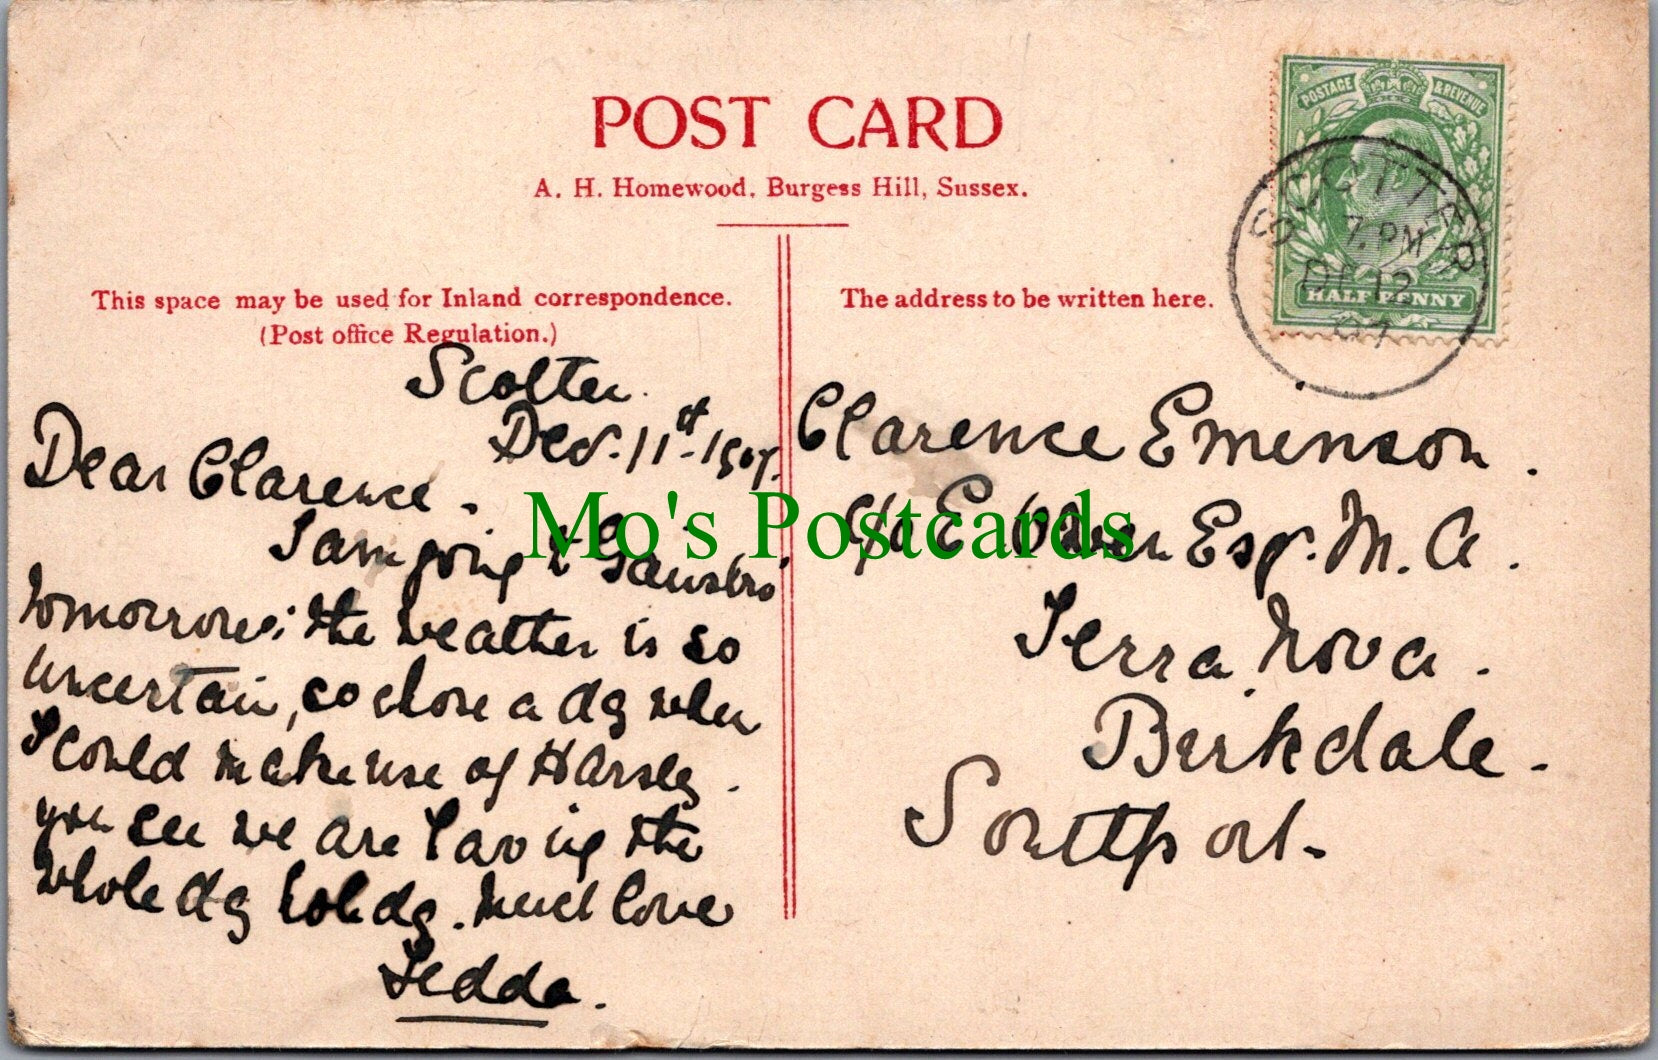 POST CARD
A. H. Homewood, Burgess Hill, Sussex.
This space may be used for Inland correspondence.
(Post office Regulation.)
The address to be written here.
POSTAGE & REVENUE
HALF PENNY
SCOTTER
7. PM
DE 12
07
Scotter.
Dec. 11th 1907.
Dear Clarence.
I am going to Gainsbro'
tomorrow; the weather is so
uncertain, so chose a day when
I could make use of Harsley.
you see we are having the
whole day holiday. Much love
Tedda.
Clarence Eminson.
c/o E. Esqr. M. A.
Terra Nova.
Birkdale.
Southport.
Mo's Postcards